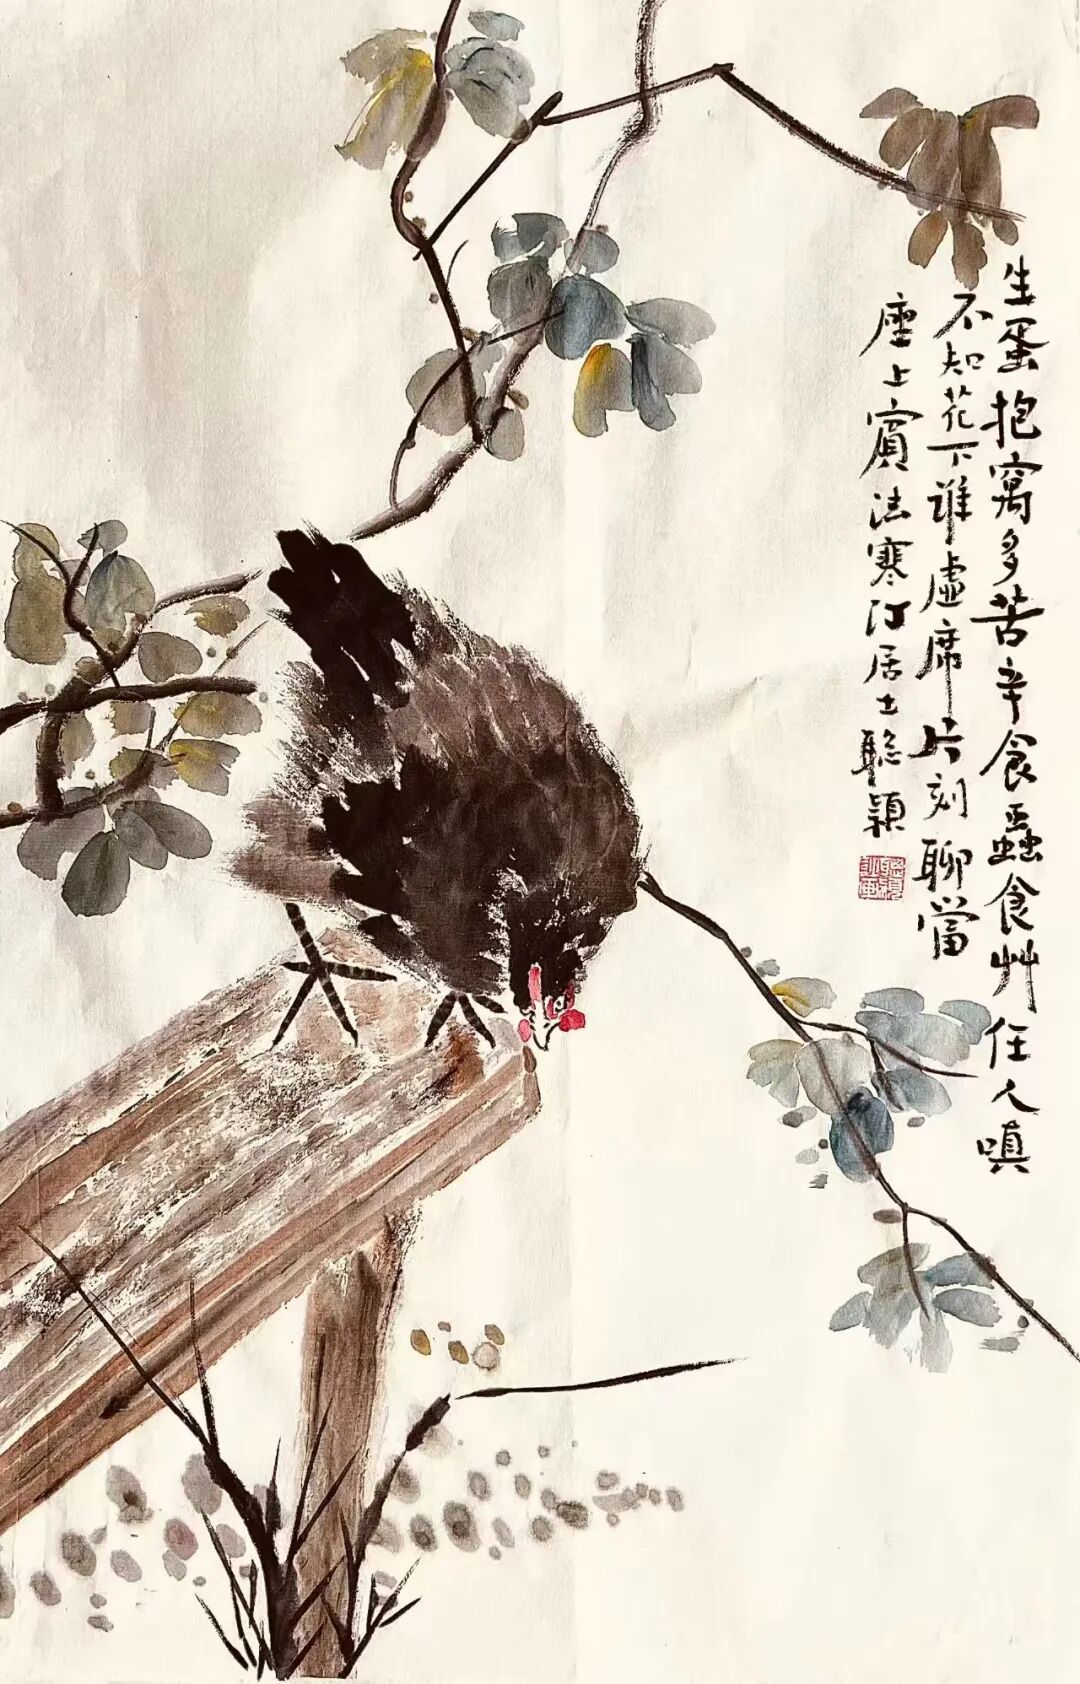 生蛋抱窝多苦辛食蟲食艸任人嗔
不知花下谁虚席片刻聊當
座上賓法寒汀居士聪颖